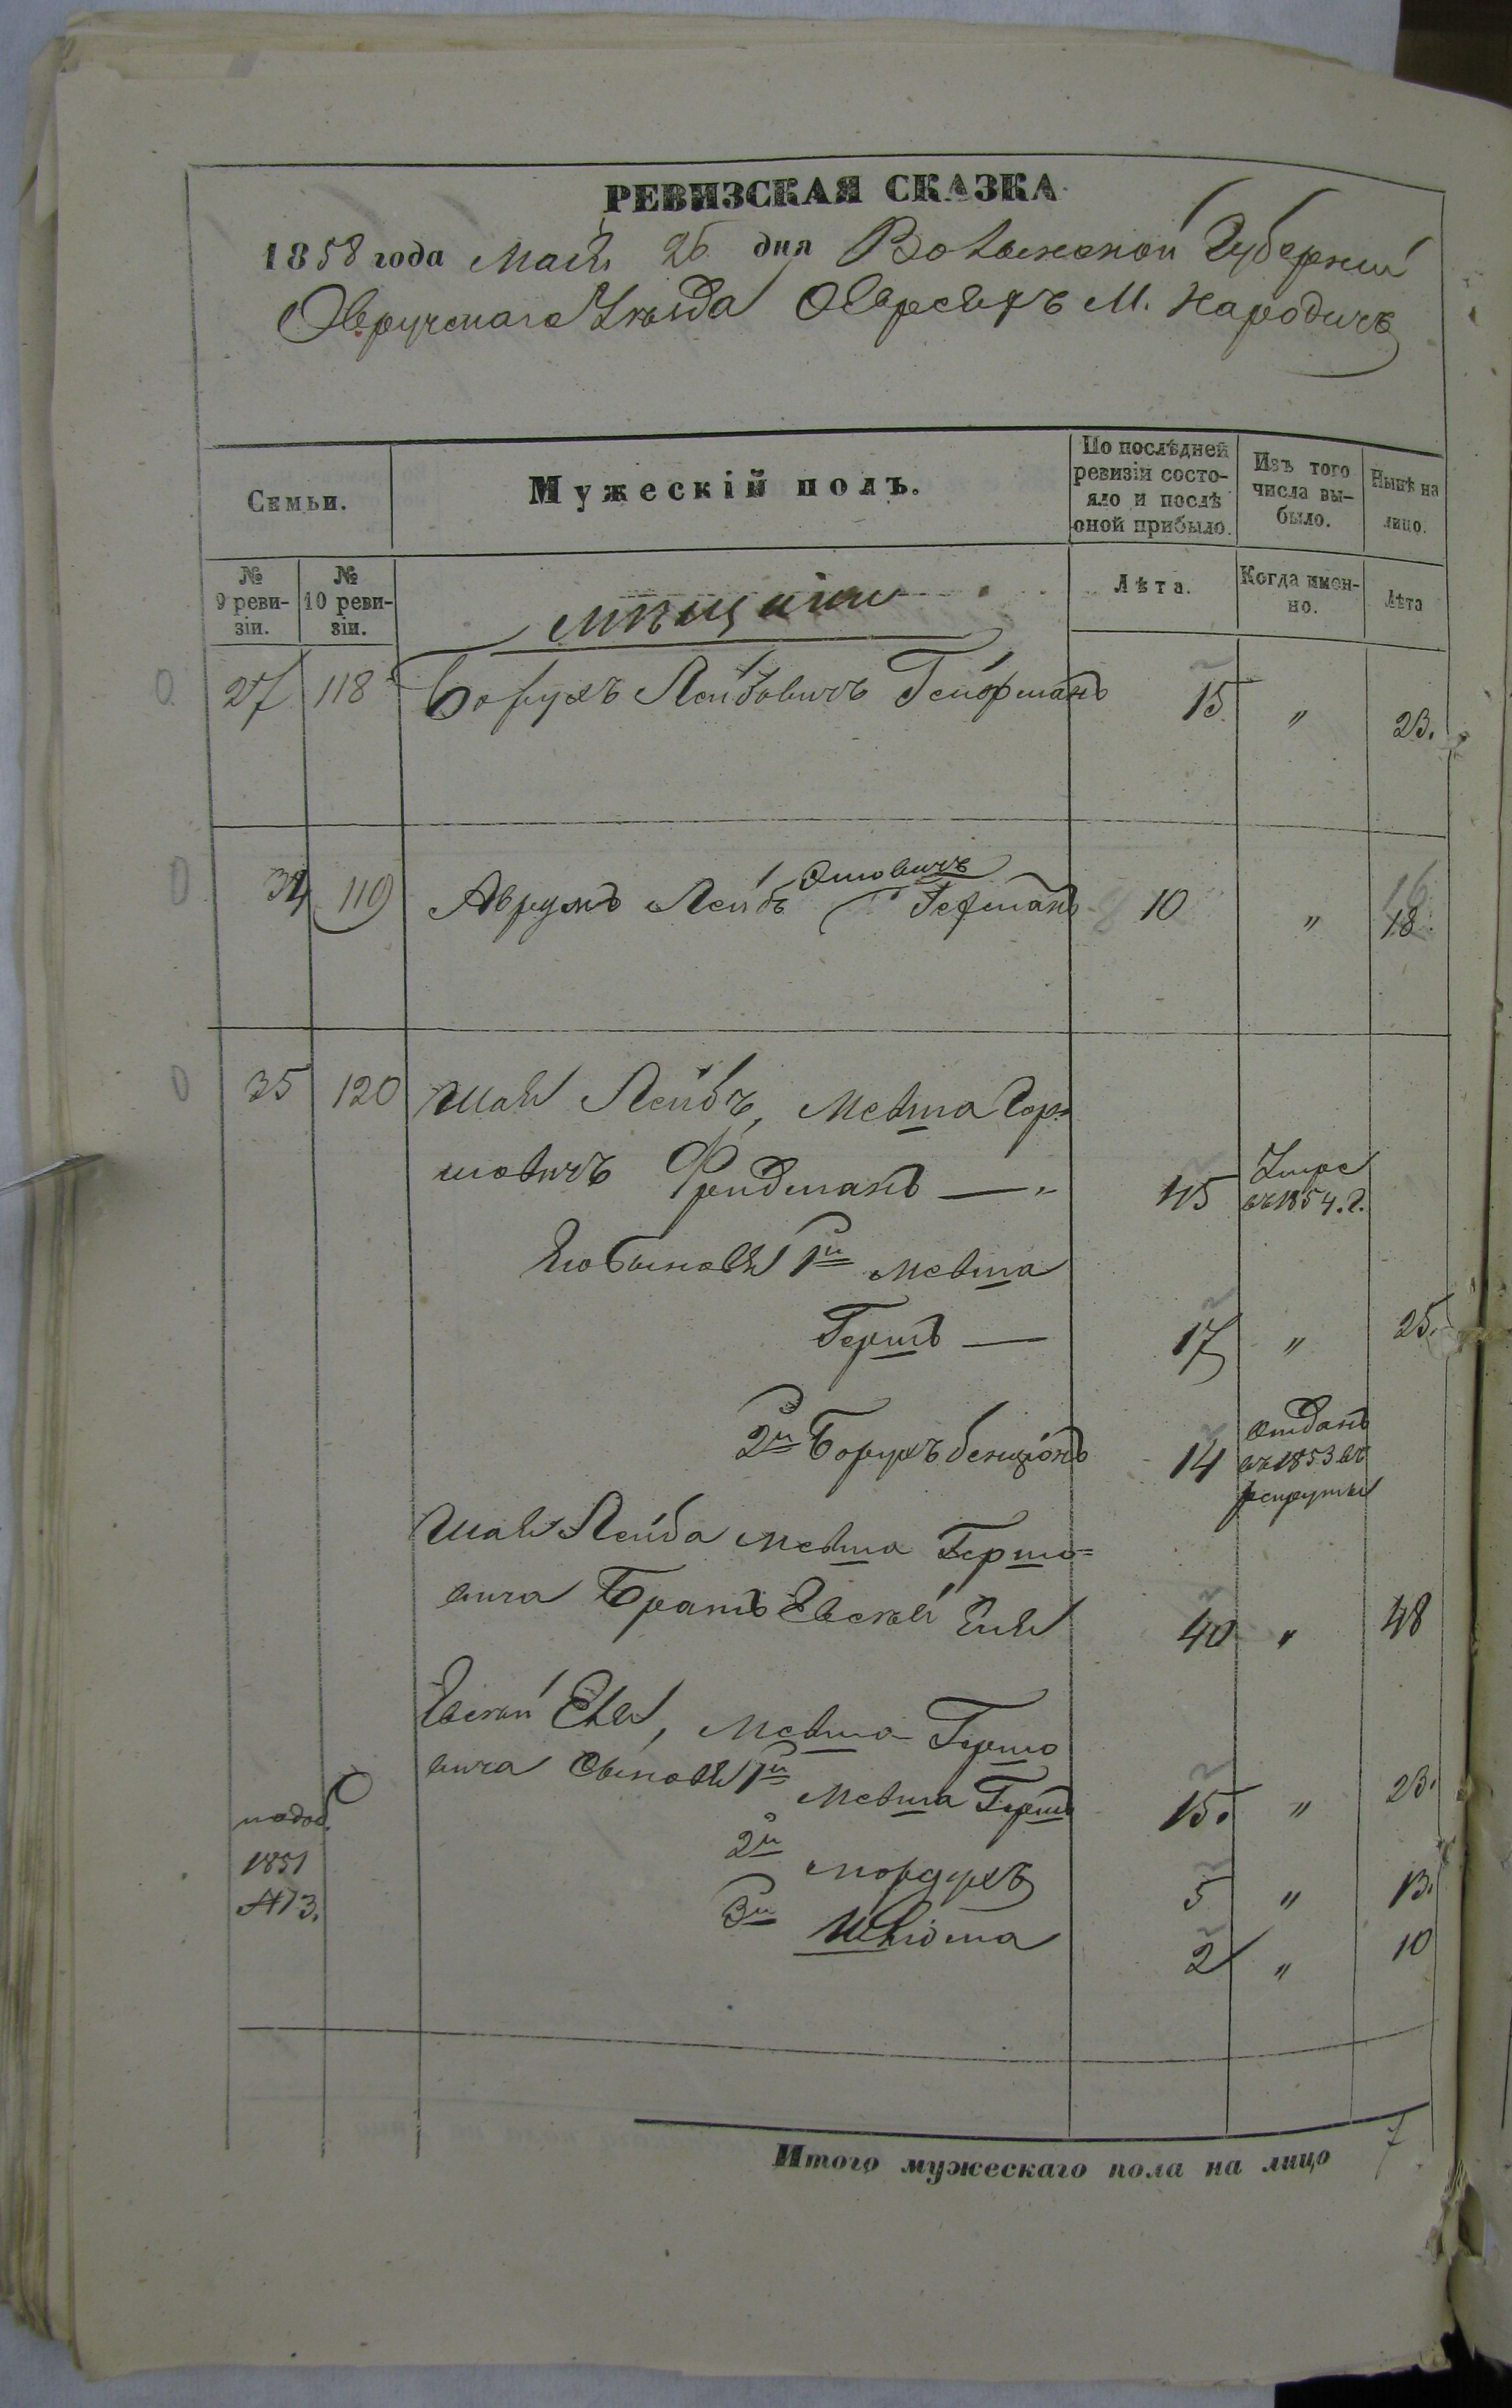 РЕВИЗСКАЯ СКАЗКА
1858 года Мая 26 дня Волынской Губерніи
Овручскаго Уѣзда О Евреяхъ М. Народичъ
Семьи.
Мужескій полъ.
По послѣдней ревизіи состояло и послѣ оной прибыло.
Изъ того числа выбыло.
Нынѣ на лицо.
№ 9 ревизіи.
№ 10 ревизіи.
Лѣта.
Когда именно.
Лѣта
Мѣщане
27 118 Борухъ Лейбовичъ 15 " 23.
Ошовичъ
34 119 Аврумъ Лейбъ 10 " 18.
16
35 120 Шая Лейбъ, Мевша Гер-
шовичъ Фридманъ — " 45 Умре въ 1854. г.
Его Сыновья 1й Мевша
Гершъ — 17 " 25.
2й Борухъ Бенціонъ 14 отданъ въ 1853 въ рекруты
Шая Лейба Мевша Гершо=
вича Братъ Евсей Еля 40 " 48
Евсей Еля, Мевша Гершо
вича Сыновья 1й Мевша Гершъ 15. " 23.
2й Мордухъ 5 " 13.
3й Шлiома 2 " 10
1851
№ 3.
Итого мужескаго пола на лицо 7